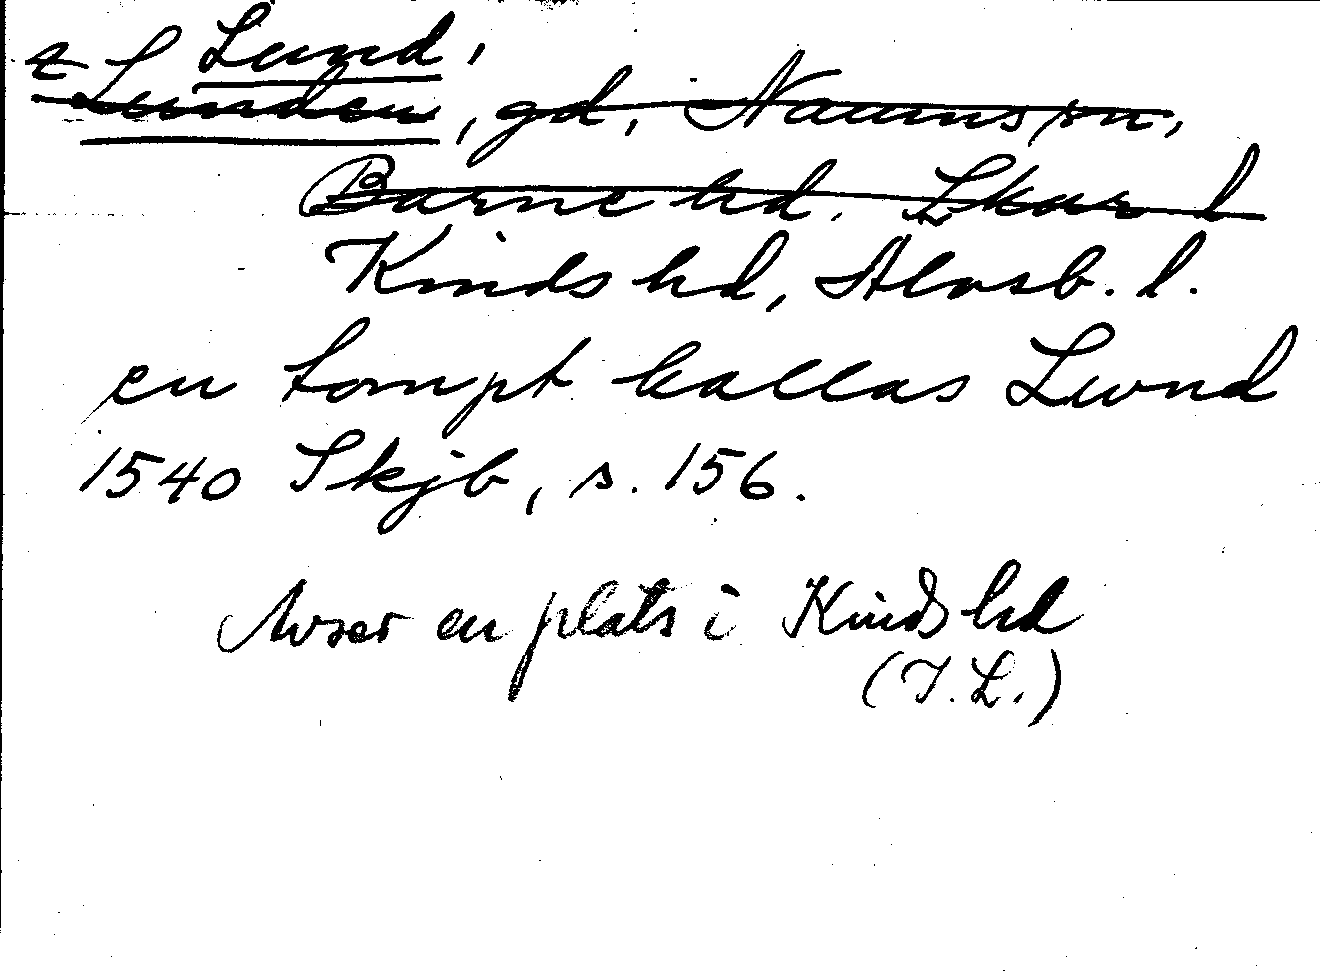 z Lund,
Lunden, gd, Naums sn,
Barne hd. Skar. l
Kinds hd, Älvsb. l.
en tompt kallas Lwnd
1540 Skjb, s. 156.
Avser en plats i Kinds hd
(I.L.)